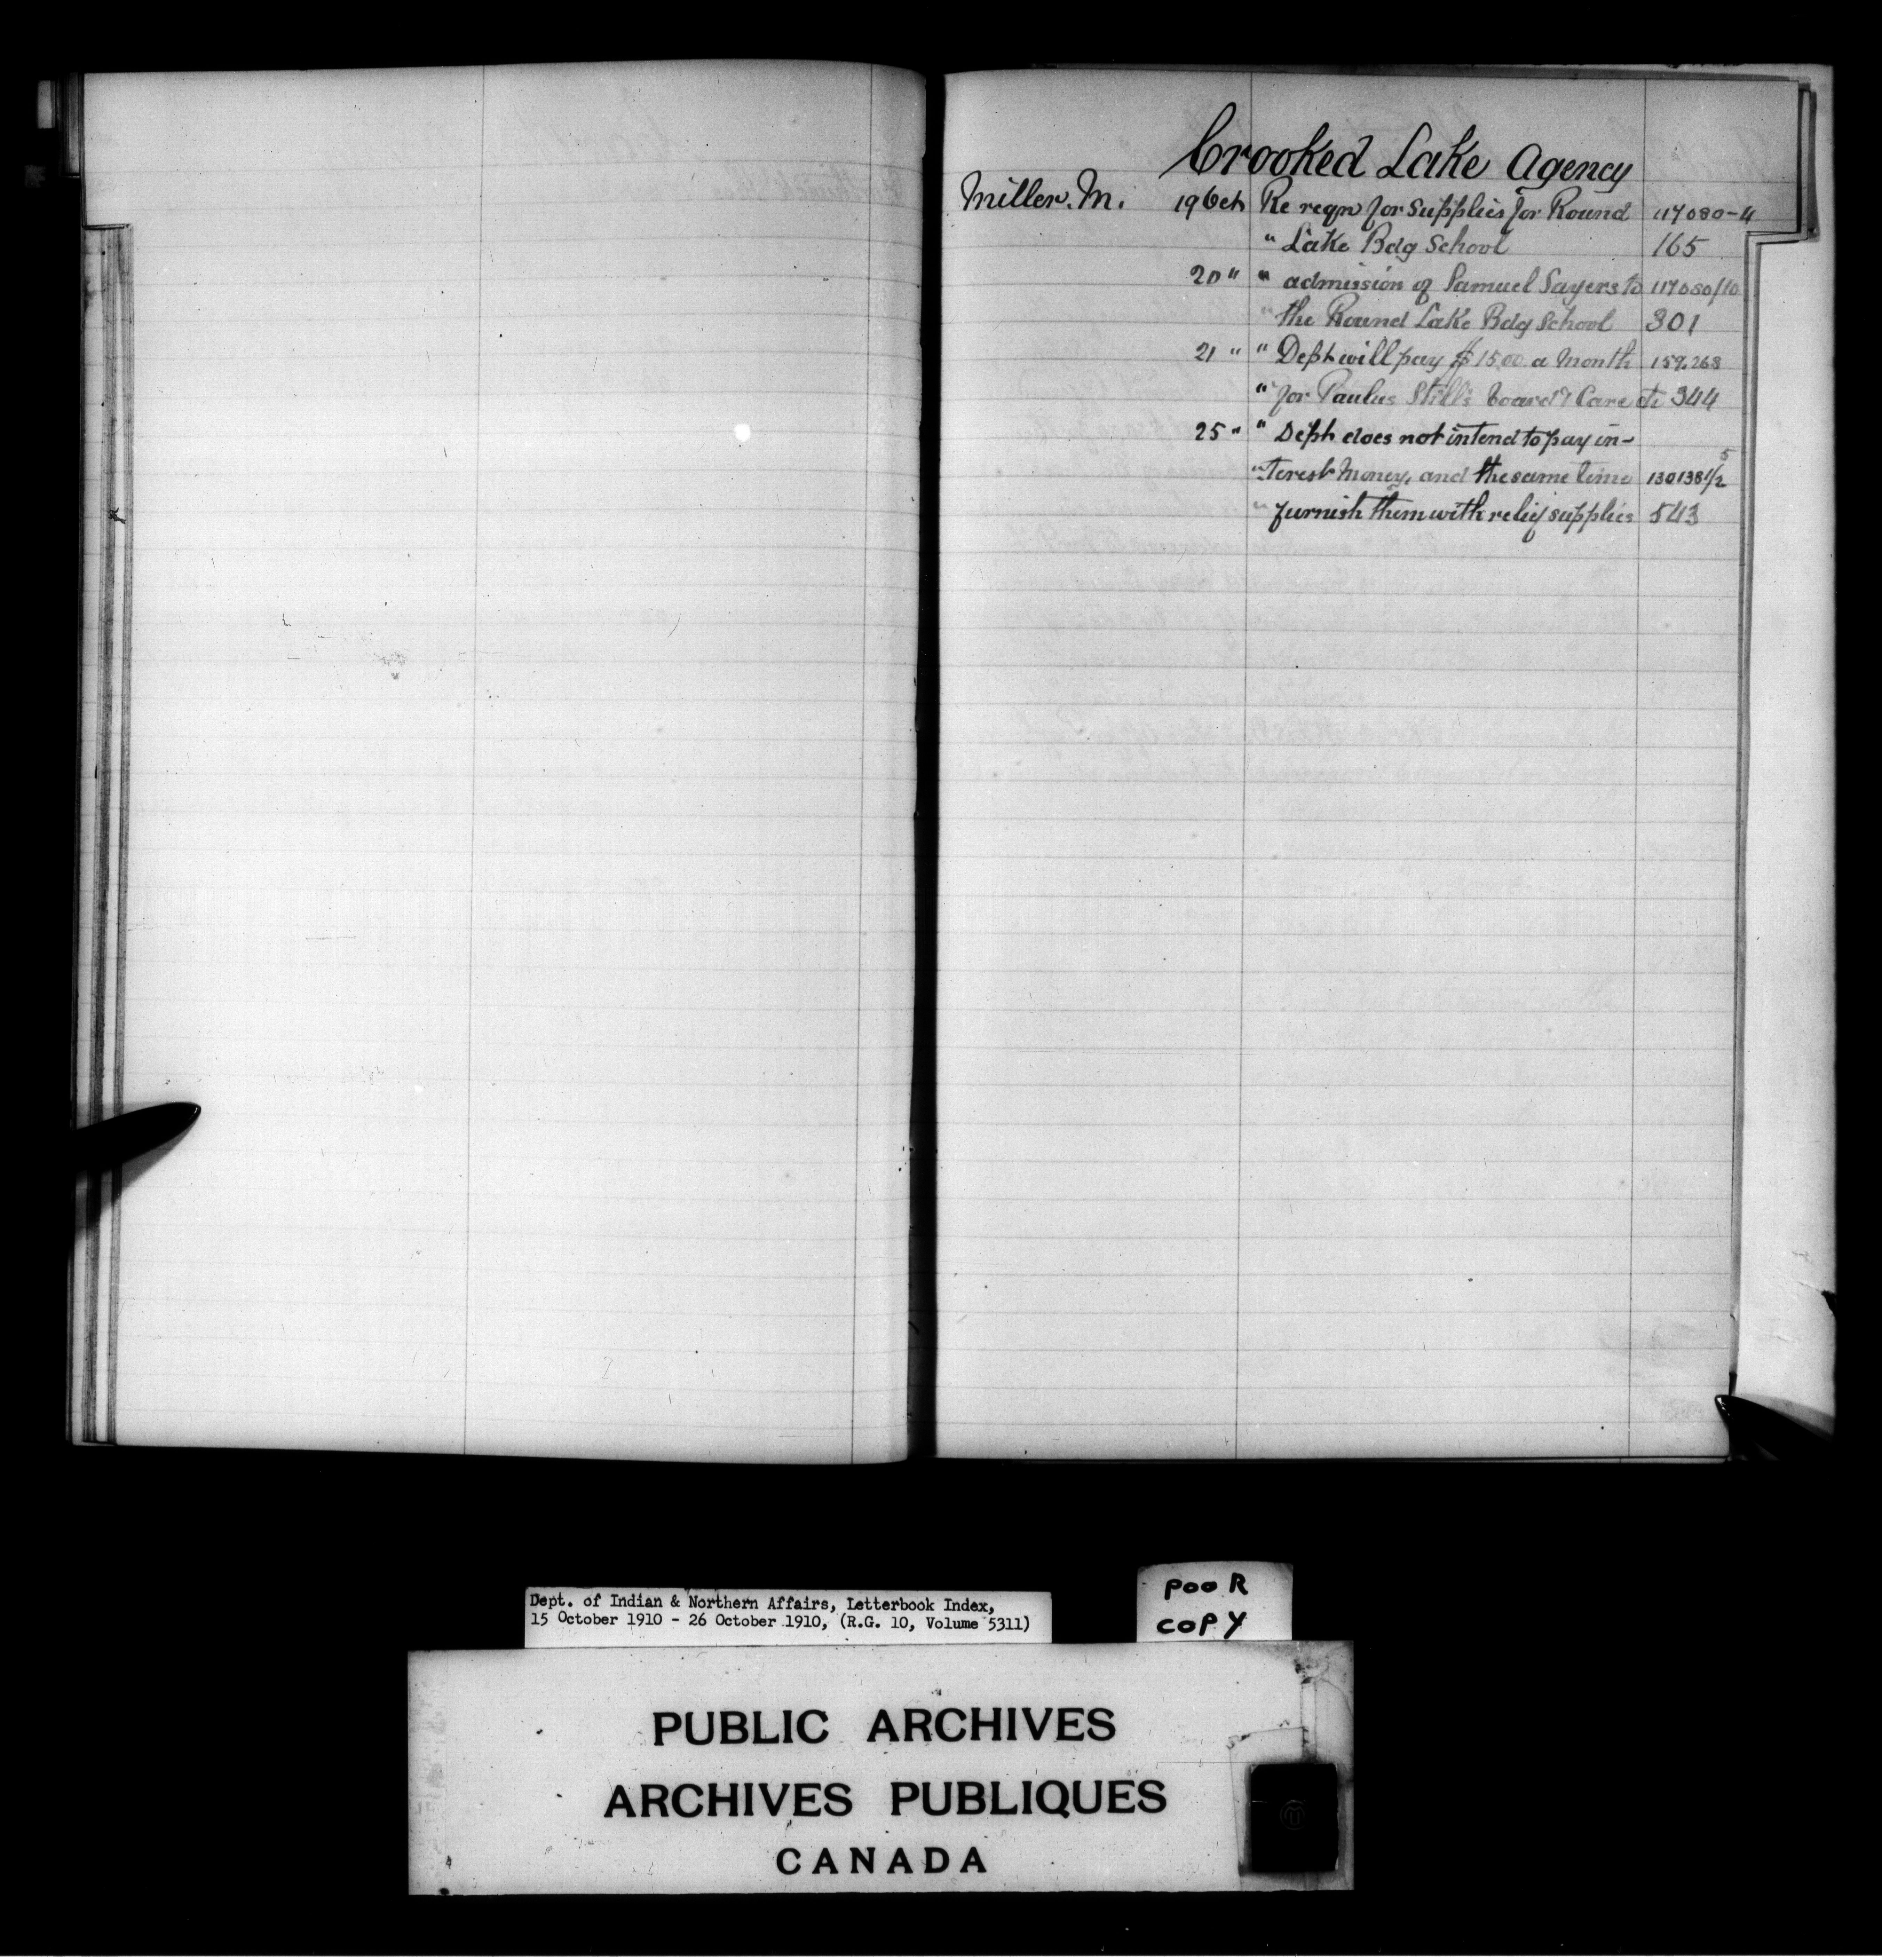 Crooked Lake Agency
Miller. M. 19 Oct Re reqn for Supplies for Round 117080-4
" Lake Bdg School 165
20 " " admission of Samuel Sayers to 117080/10
" the Round Lake Bdg School 301
21 " " Dept will pay $15.00 a Month 159.268
" for Paulus Still's board & Care 344
25 " " Dept does not intend to pay in-
" terest Money, and the same time 130138 1/2 5
" furnish them with relief supplies 543
Dept. of Indian & Northern Affairs, Letterbook Index,
15 October 1910 - 26 October 1910, (R.G. 10, Volume 5311)
POOR
COPY
PUBLIC ARCHIVES
ARCHIVES PUBLIQUES
CANADA